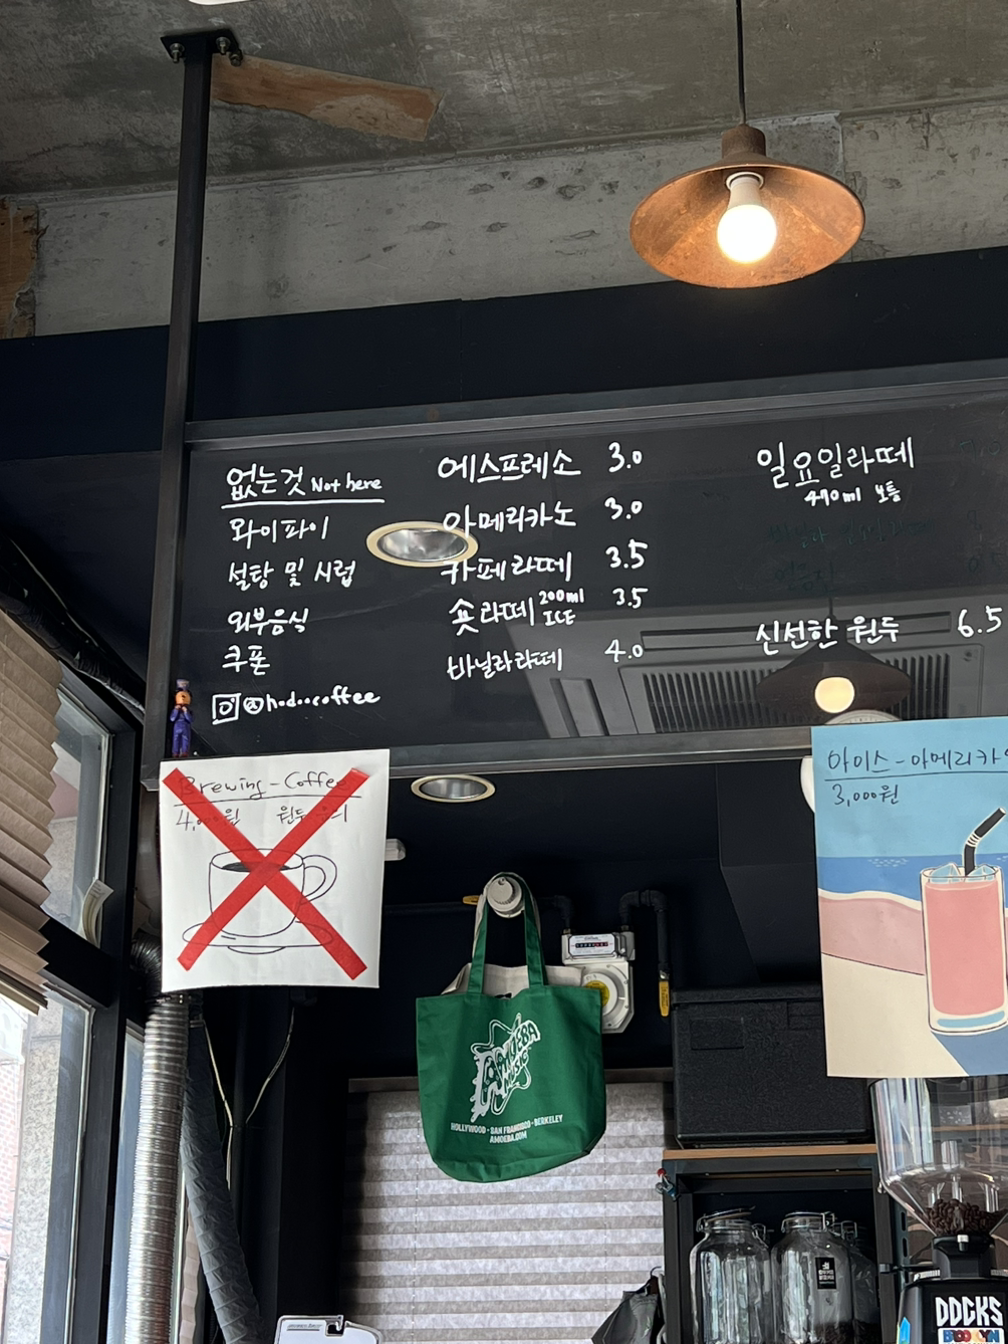 없는것 Not here
와이파이
설탕 및 시럽
외부음식
쿠폰
@hodoocoffee
에스프레소 3.0
아메리카노 3.0
카페라떼 3.5
숏라떼 200ml ICE 3.5
바닐라라떼 4.0
일요일라떼
470ml 보틀
신선한 원두 6.5
Brewing-Coffee
4,000원 원두
아이스-아메리카
3,000원
AMOEBA
MUSIC
HOLLYWOOD · SAN FRANCISCO · BERKELEY
AMOEBA.COM
DOCKS